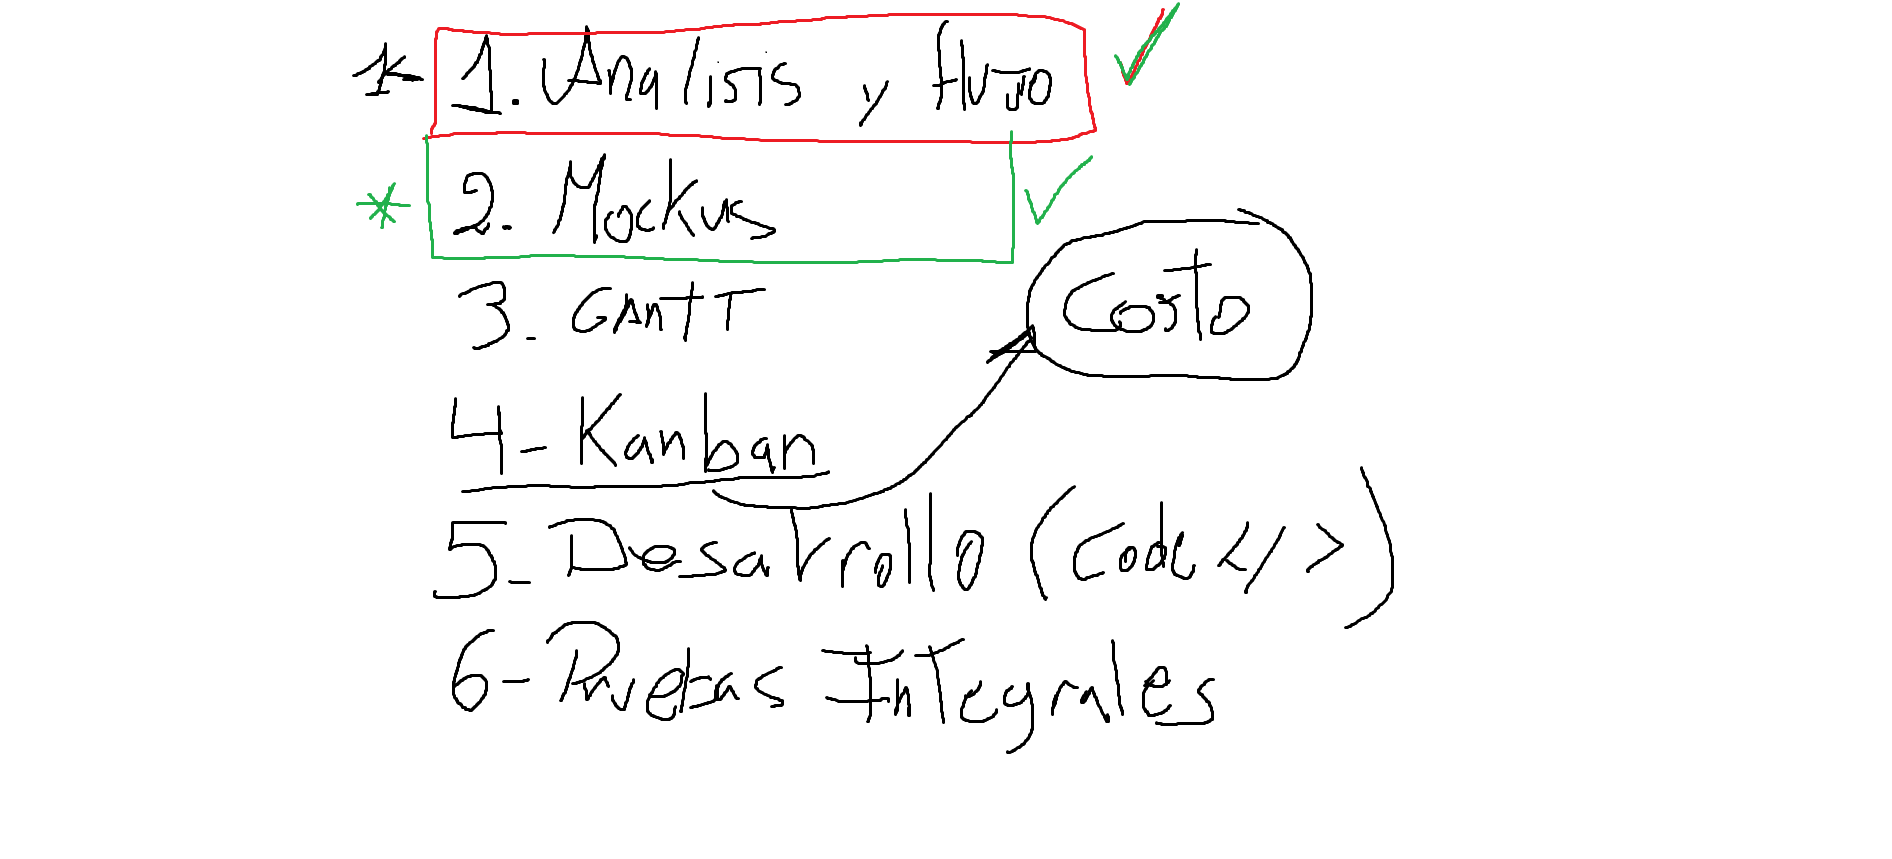 1. Analisis y flujo
2. Mockus
3. GAnTT
Costo
4- Kanban
5- Desarrollo (Code </>)
6- Pruebas Integrales